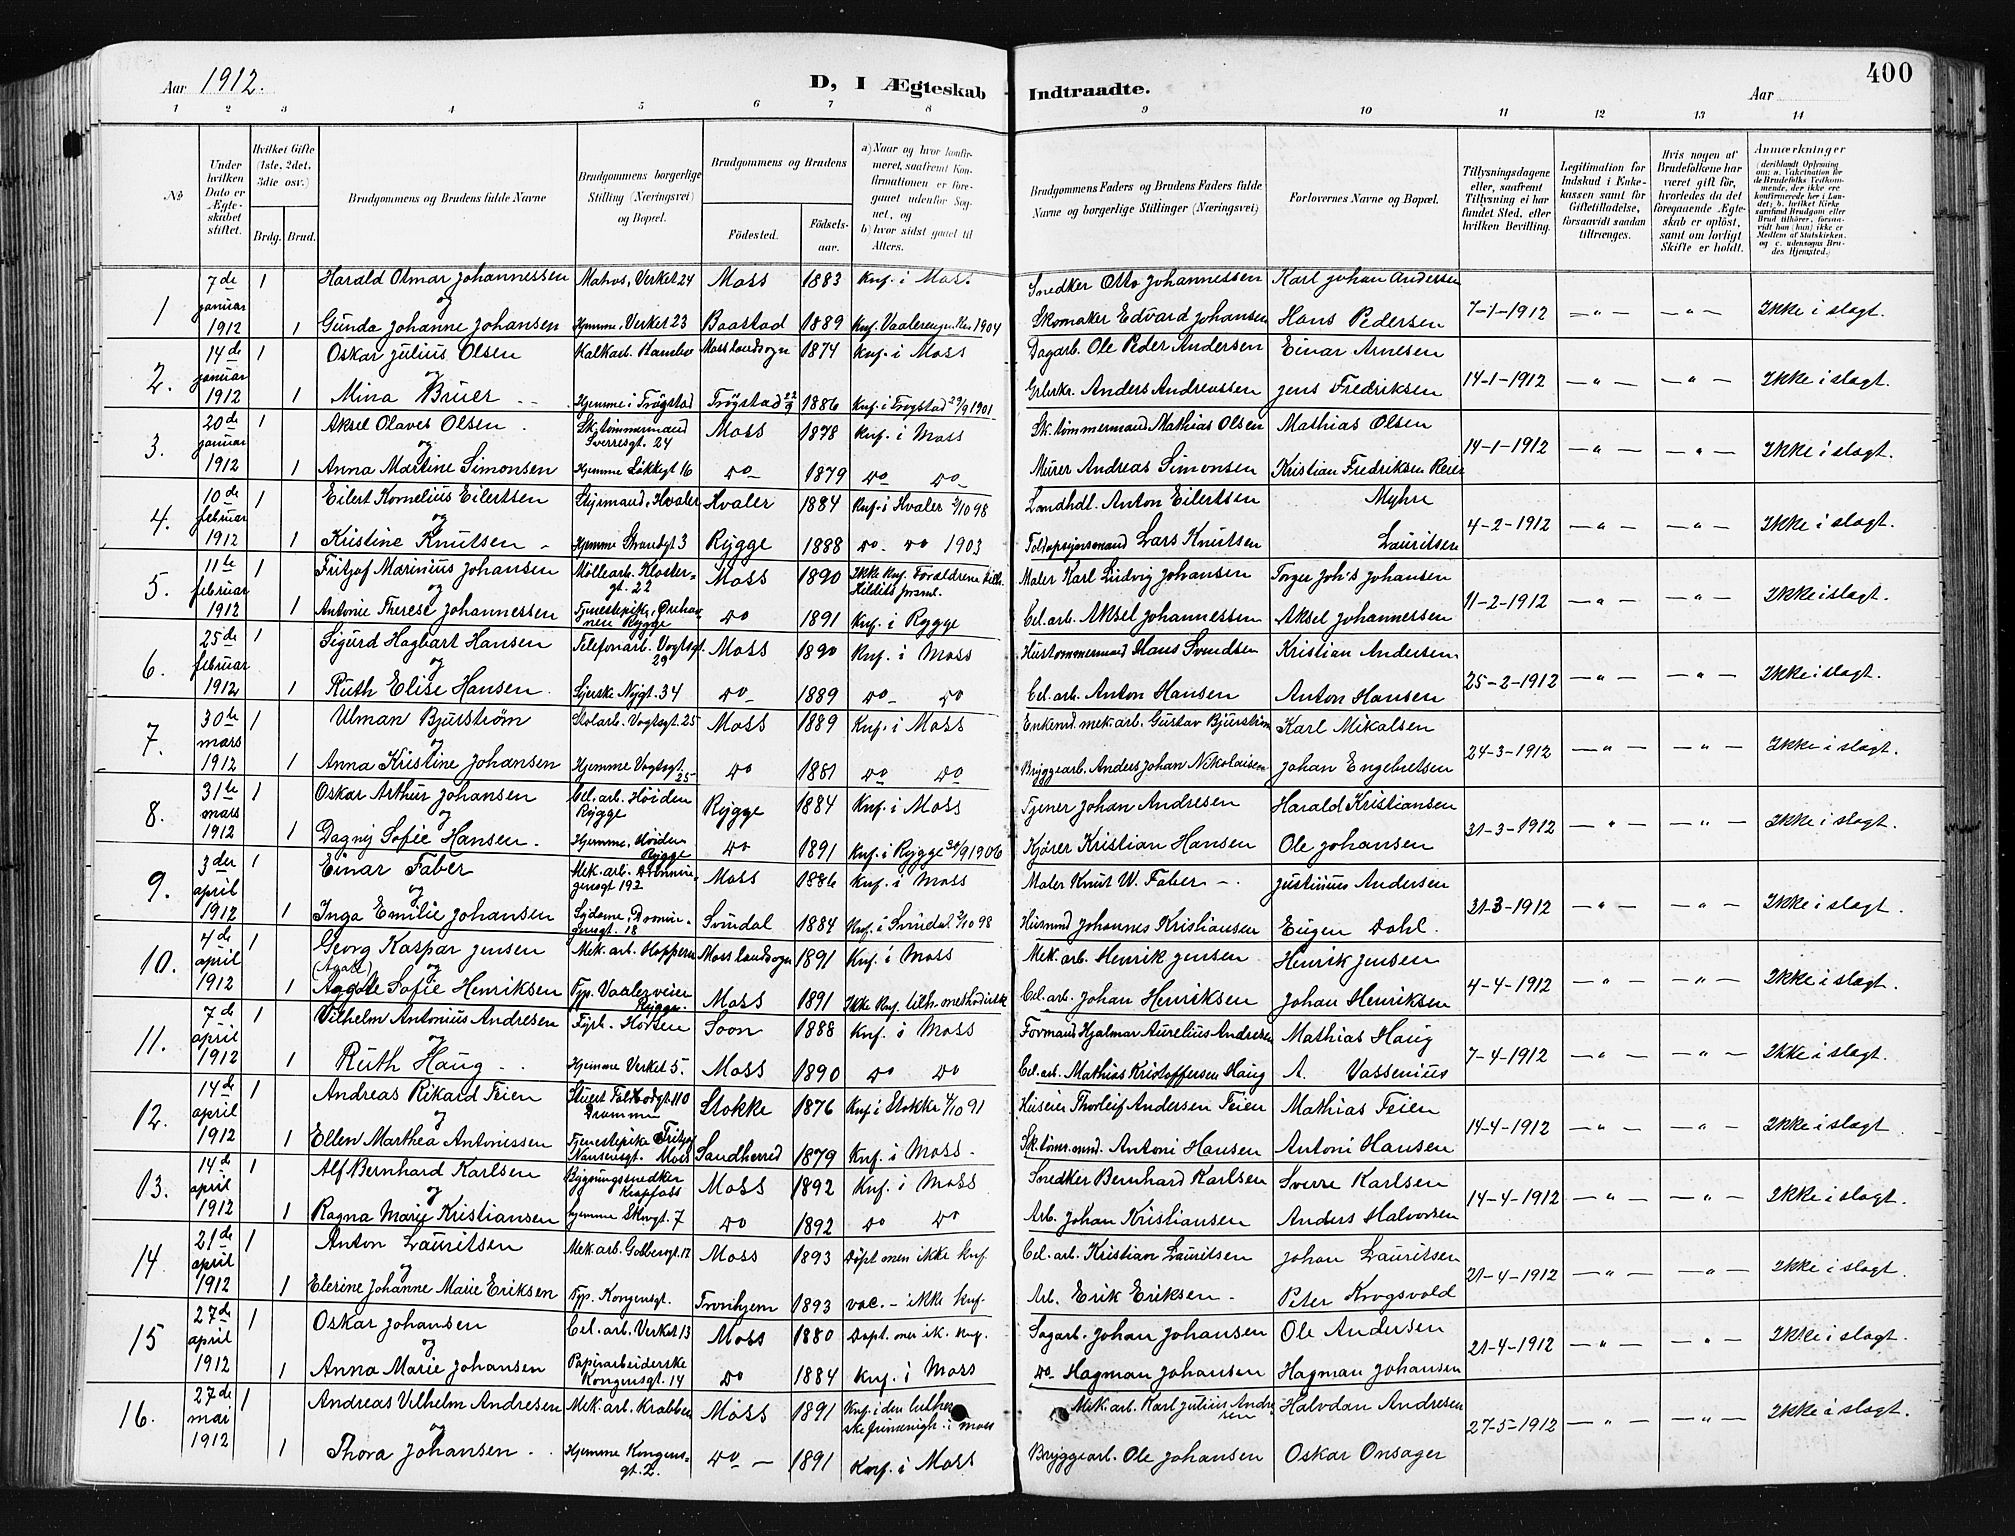 400
Aar 1912.
D, I Ægteskab Indtraadte.
Aar
1 2 3 4 5 6 7 8 9 10 11 12 13 14
No
Under hvilken Dato er Ægteskabet stiftet.
Hvilket Gifte (1ste, 2det, 3dte osv.)
Brdg. Brud.
Brudgommens og Brudens fulde Navne
Brudgommens borgerlige Stilling (Næringsvei) og Bopæl.
Brudgommens og Brudens
Fødested. Fødselsaar.
a) Naar og hvor konfirmeret, saafremt Konfirmationen er foregaaet udenfor Sognet, og
b) hvor sidst gaaet til Alters.
Brudgommens Faders og Brudens Faders fulde Navne og borgerlige Stillinger (Næringsvei)
Forlovernes Navne og Bopæl.
Tillysningsdagene eller, saafremt Tillysning ei har fundet Sted, efter hvilken Bevilling.
Legitimation for Indskud i Enkekassen samt for Giftetilladelse, forsaavidt saadan tiltrænges.
Hvis nogen af Brudefolkene har været gift før, hvorledes da det foregaaende Ægteskab er opløst, samt om lovligt Skifte er holdt.
Anmærkninger (deriblandt Oplysning om: a. Vakcination for de Brudefolks Vedkommende, der ikke ere konfirmerede her i Landet; b. hvilket Kirkesamfund Brudgom eller Brud tilhører, forsaavidt han (hun) ikke er Medlem af Statskirken, og c. udensogns Brudes Hjemsted.)
1 7de januar 1912 1 Harald Osmar Johannessen Matros, Verket 24 Moss 1883 Knf. i Moss Snedker Otto Johannessen Karl Johan Andersen 7-1-1912 — " — — " — Ikke i slægt.
og
1 Gunda Johanne Johansen Hjemme, Verket 23 Baastad 1889 Knf. Vaalerengen 1904 Skomaker Edvard Johansen Hans Pedersen
2. 14de januar 1912 1 Oskar Julius Olsen Kalkarb. Kambo Moss landsogn 1874 Knf. i Moss Dagarb. Ole Peder Andersen Einar Arnesen 14-1-1912 — " — — " — Ikke i slægt.
og
1 Mina Bruer Hjemme i Trøgstad Trøgstad 22/9 1886 Knf. i Trøgstad 29/9 1901 Anders Andreassen Jens Fredriksen
3. 20de januar 1912 1 Aksel Olaves Olsen Sk.tømmermand Sverresgt. 24 Moss 1878 Knf. i Moss Sk.tømmermand Mathias Olsen Mathias Olsen 14-1-1912 — " — — " — Ikke i slægt.
og
1 Anna Martine Simonsen Hjemme Løkkegt 16 do 1879 do do Murer Andreas Simonsen Kristian Fredriksen
4. 10de februar 1912 1 Eilert Kornelius Eilertsen Styrmand, Hvaler Hvaler 1884 Knf. i Hvaler 2/10 98 Landhdl. Anton Eilertsen Myhre 4-2-1912 — " — — " — Ikke i slægt.
og
1 Kristine Knutsen Hjemme Strandgt 3 Rygge 1888 do do 1903 Toldopsynsmand Lars Knutsen Lauritsen
5. 11te februar 1912 1 Fritjof Marinius Johansen Møllearb. Klostergt. 22 Moss 1890 Ikke Knf. Forældrene tilh. Maler Karl Ludvig Johansen Torger Joh's Johansen 11-2-1912 — " — — " — Ikke i slægt.
og
1 Antonie Therese Johannessen Tjenestepike, Rygge do 1891 Knf. i Rygge Cel. arb. Aksel Johannessen Aksel Johannessen
6. 25de februar 1912 1 Sigurd Hagbart Hansen Telefonarb. Vogtsgt. 29 Moss 1890 Knf. i Moss Hustømmermand Hans Svendsen Kristian Andersen 25-2-1912 — " — — " — Ikke i slægt.
og
1 Ruth Elise Hansen Syerske Nygt. 34 do 1889 do do Cel. arb. Anton Hansen Anton Hansen
7. 30te mars 1912 1 Ulman Bjurstrøm Stolarb. Vogtsgt. 25 Moss 1889 Knf. i Moss Enkemd. mek. arb. Gustav Bjurstrøm Karl Mikalsen 24-3-1912 — " — — " — Ikke i slægt.
og
1 Anna Kristine Johansen Hjemme Vogtsgt. 25 do 1881 do do Bryggearb. Anders Johan Nikolaisen Johan Engebretsen
8. 31te mars 1912 1 Oskar Arthur Johansen Cel. arb. Høiden Rygge Rygge 1884 Knf. i Moss Tjener Johan Andresen Harald Kristiansen 31-3-1912 — " — — " — Ikke i slægt.
og
1 Dagny Sofie Hansen Hjemme, Høiden Rygge do 1891 Knf. i Rygge 30/9 1906 Kjører Kristian Hansen Ole Johansen
9. 3die april 1912 1 Einar Faber Mek. arb. Dronningensgt 192 Moss 1886 Knf. i Moss Maler Knut W. Faber Justinus Andersen 31-3-1912 — " — — " — Ikke i slægt.
og
1 Inga Emilie Johansen Sydame, Dronningensgt. 18 Svindal 1884 Knf. i Svindal 2/10 98 Husmnd Johannes Kristiansen Eugen Dahl.
10. 4de april 1912 1 Georg Kaspar Jensen Mek. arb. Hoppern Moss landsogn 1891 Knf. i Moss Mek. arb. Henrik Jensen Henrik Jensen 4-4-1912 — " — — " — Ikke i slægt.
(Agate) og
1 Agate Sofie Henriksen Typ. Vaalerveien Rygge Moss 1891 Ikke Knf. tilh. methodistk. Cel. arb. Johan Henriksen Johan Henriksen
11. 7de april 1912 1 Vilhelm Antonius Andresen Fyrb. Horten Soon 1888 Knf. i Moss Formand Hjalmar Aurelius Andresen Mathias Haug 7-4-1912 — " — — " — Ikke i slægt.
og
1 Ruth Haug Hjemme Verket 5. Moss 1890 do do Cel. arb. Mathias Kristoffersen Haug A. Vassenius
12. 14de april 1912 1 Andreas Rikard Feien Stuert 110 Drammen Stokke 1876 Knf. i Stokke 4/10 91 Huseier Thorleif Andersen Feien Mathias Feien 14-4-1912 — " — — " — Ikke i slægt.
og
1 Ellen Marthea Antonissen Tjenestepike Fritjof Nansensgt. Moss Sandherred 1879 Knf. i Moss Sk. tømr. mnd. Antoni Hansen Antoni Hansen
13. 14de april 1912 1 Alf Bernhard Karlsen Bygningssnedker Krapfoss Moss 1892 Knf. i Moss Snedker Bernhard Karlsen Sverre Karlsen 14-4-1912 — " — — " — Ikke i slægt.
og
1 Ragna Marie Kristiansen Hjemme Skovgt. 7 do 1892 do do Arb. Johan Kristiansen Anders Halvorsen
14. 21de april 1912 1 Anton Lauritsen Mek. arb. Gabbesgt. 12 Moss 1893 Døpt men ikke knf. Cel. arb. Kristian Lauritsen Johan Lauritsen 21-4-1912 — " — — " — Ikke i slægt.
og
1 Elerine Johanne Marie Eriksen Typ. Kongensgt. Tronhjem 1893 vac. - ikke knf. Arb. Erik Eriksen Peter Krogsvold
15 27de april 1912 1 Oskar Johansen Cel. arb. Verket 13 Moss 1880 Døpt. men ik. knf. Sagarb. Johan Johansen Ole Andersen 21-4-1912 — " — — " — Ikke i slægt.
og
1 Anna Marie Johansen Papirarbeiderske Kongensgt. 14 do 1884 Knf. i Moss do Hagman Johansen Hagman Johansen
16. 27de mai 1912 1 Andreas Vilhelm Andresen Mek. arb. Krabben Moss 1891 Knf. i den lutherske frimenigh. i Moss Mek. arb. Karl Julius Andresen Halvdan Andresen 27-5-1912 — " — — " — Ikke i slægt.
og
1 Thora Johansen Hjemme Kongensgt. 2. do 1891 Knf. i Moss Bryggearb. Ole Johansen Oskar Onsager